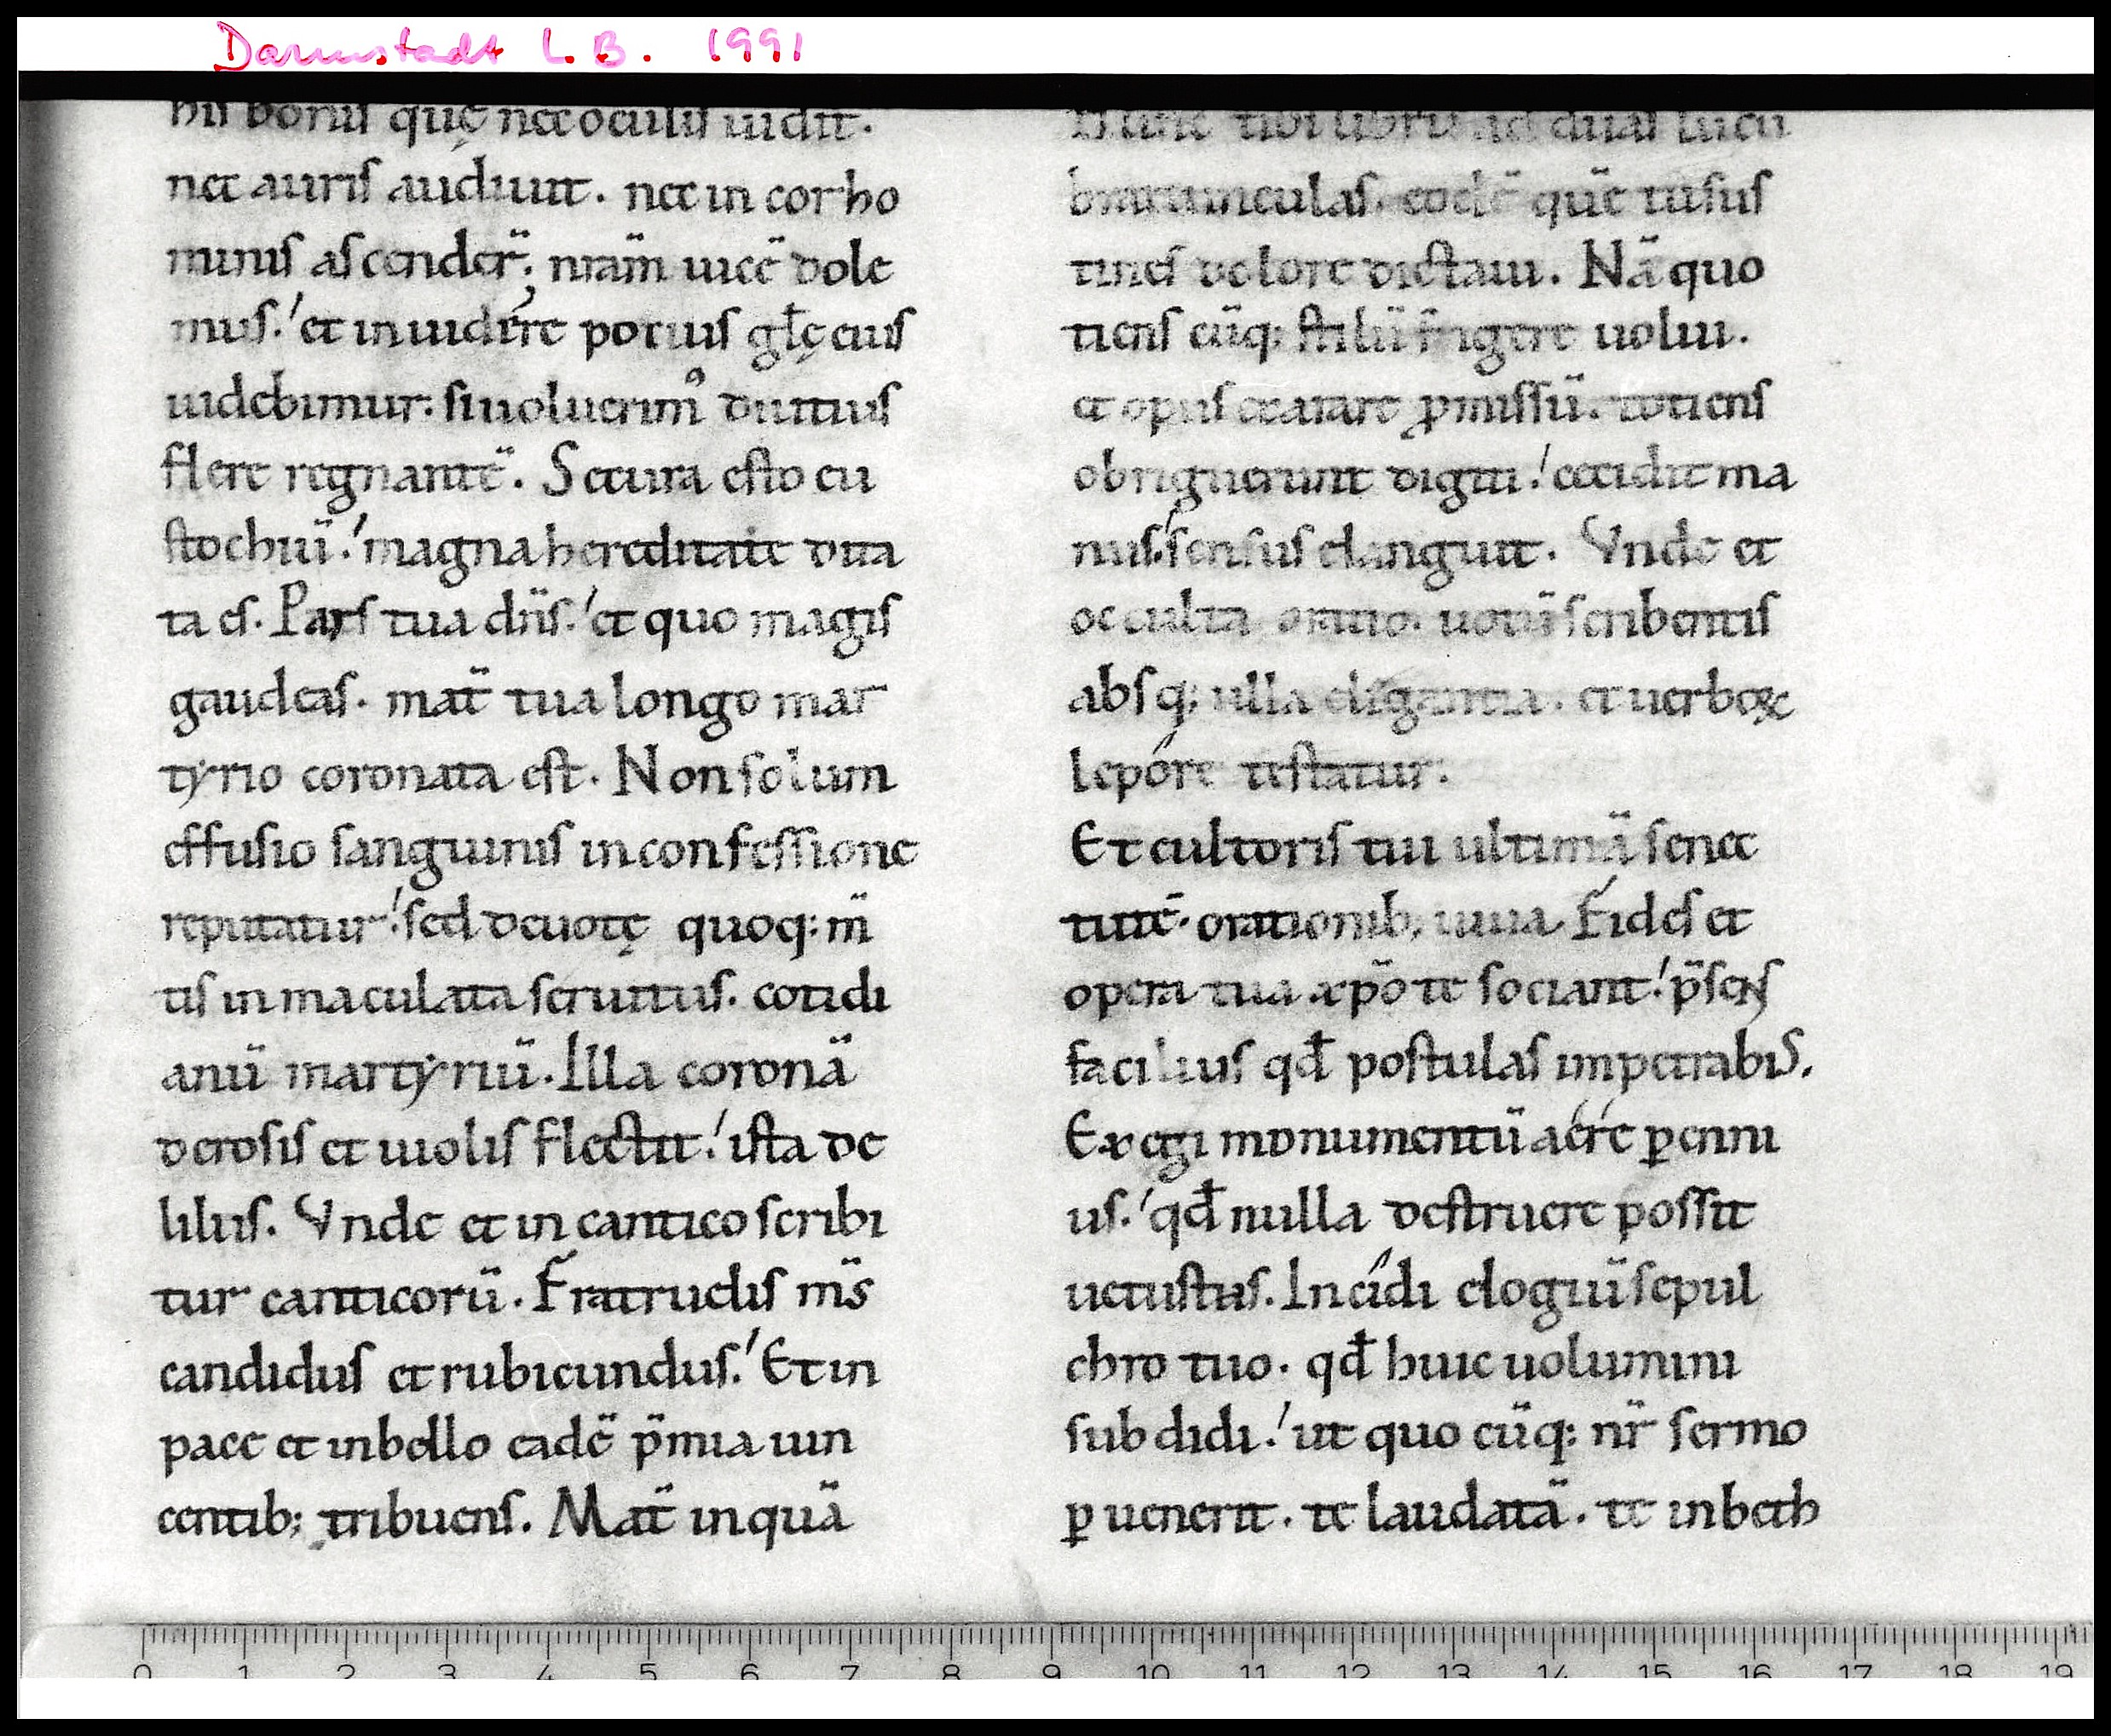 Darmstadt L.B. 1991
hiſ boniſ quę nec oculuſ uidit.
nec auriſ audiuit. nec in cor ho
miniſ aſcender̄; nr̄am uicē dole
muſ.' et inuidére pociuſ gl̄ę eiuſ
uidebimur. ſi uoluerim᾽ diutiuſ
flere regnantē. Secura eſto eu
ſtochiū.' magna hereditate dita
ta eſ. Parſ tua dn̄ſ.' et quo magiſ
gaudeaſ. mat̄ tua longo mar
tẏrio coronata eſt. Non ſolum
effuſio ſanguiniſ in confeſſione
reputatur.' ſed deuotę quoq; m̄
tiſ inmaculata ſeruituſ. cotidi
anū martẏriū. Illa coronā
de roſiſ et uioliſ flectit.' iſta de
liliiſ. Vnde et in cantico ſcribi
tur canticorū. Fratruelis m̄s
candiduſ et rubicunduſ.' Et in
pace et in bello eadē p̄mia uin
centib; tribuenſ. Mat̄ inquā
tibi librū ad duaſ lucu
bratiunculaſ. eodē quē tu ſuſ
tineſ dolore dictaui. Nā quo
tienſ cūq; ſtilū figere uolui.
et opuſ exarare ꝓmiſſū. totienſ
obriguerunt digiti.' cecidit ma
nuſ.' ſenſuſ elanguit. Vnde et
occulta oratio. uotū ſcribentiſ
abſq; ulla eligantia. et uerboꝝ
lepóre teſtatur.
Et cultoriſ tui ultimā ſenec
tutē. orationib; iuua. Fideſ et
opera tua xp̄o te ſociant.' p̄ſenſ
faciliuſ qd̄ poſtulaſ impetrabiſ.
Exegi monumentū aére ꝑenni
uſ.' qd̄ nulla deſtruere poſſit
uetuſtaſ. Incídi elogiū ſepul
chro tuo. qd̄ huic uolumini
ſubdidi.' ut quo cūq; nr̄ ſermo
ꝑuenerit. te laudatā. te in beth
0 1 2 3 4 5 6 7 8 9 10 11 12 13 14 15 16 17 18 19